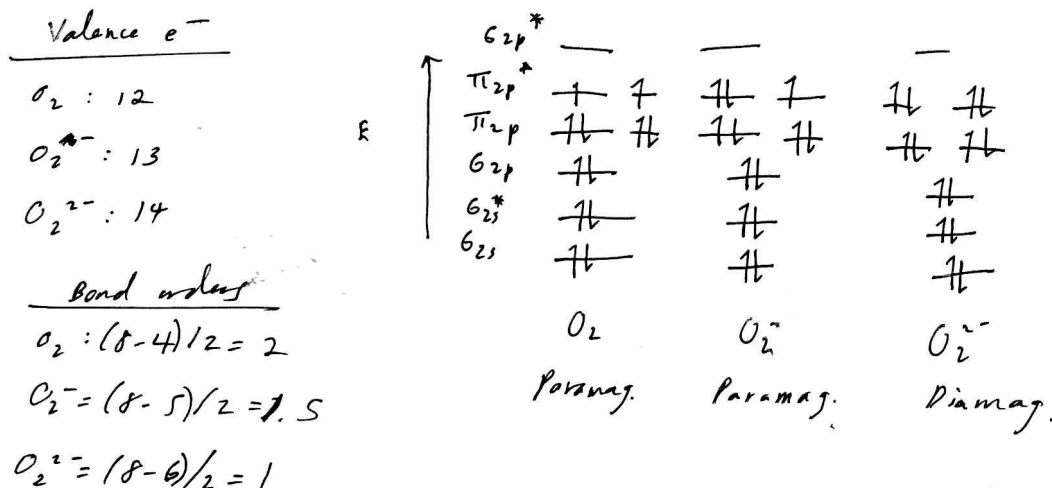 Valence e⁻
O₂ : 12
O₂⁻ : 13
O₂²⁻ : 14
Bond orders
O₂ : (8-4)/2 = 2
O₂⁻ = (8-5)/2 = 1.5
O₂²⁻ = (8-6)/2 = 1
E
σ2p*
π2p*
π2p
σ2p
σ2s*
σ2s
O₂ O₂⁻ O₂²⁻
Paramag. Paramag. Diamag.